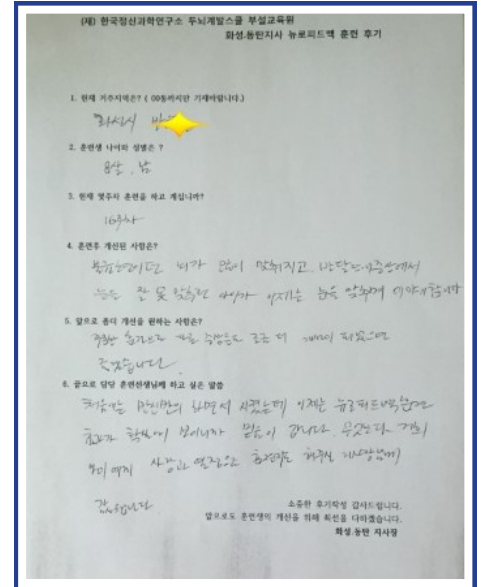 (재) 한국정신과학연구소 두뇌개발스쿨 부설교육원
화성.동탄지사 뉴로피드백 훈련 후기
1. 현재 거주지역은? ( 00동까지만 기재바랍니다.)
화성시
2. 훈련생 나이와 성별은 ?
8살, 남
3. 현재 몇주차 훈련을 하고 계십니까?
16주차
4. 훈련후 개선된 사항은?
뇌가 많이 맞춰지고
눈을 잘 못 맞추던 아이가 이제는 눈을 맞추며 이야기합니다
5. 앞으로 좀더 개선을 원하는 사항은?
조금 더 되었으면
좋겠습니다.
6. 끝으로 담당 훈련선생님께 하고 싶은 말씀
처음에는 반신반의 하면서 시켰는데 이제는 뉴로피드백훈련
효과가 확실히 보이니까 믿음이 갑니다. 무엇보다 저희
사랑과 열정으로 지사장님께
감사합니다
소중한 후기작성 감사드립니다.
앞으로도 훈련생의 개선을 위해 최선을 다하겠습니다.
화성.동탄 지사장